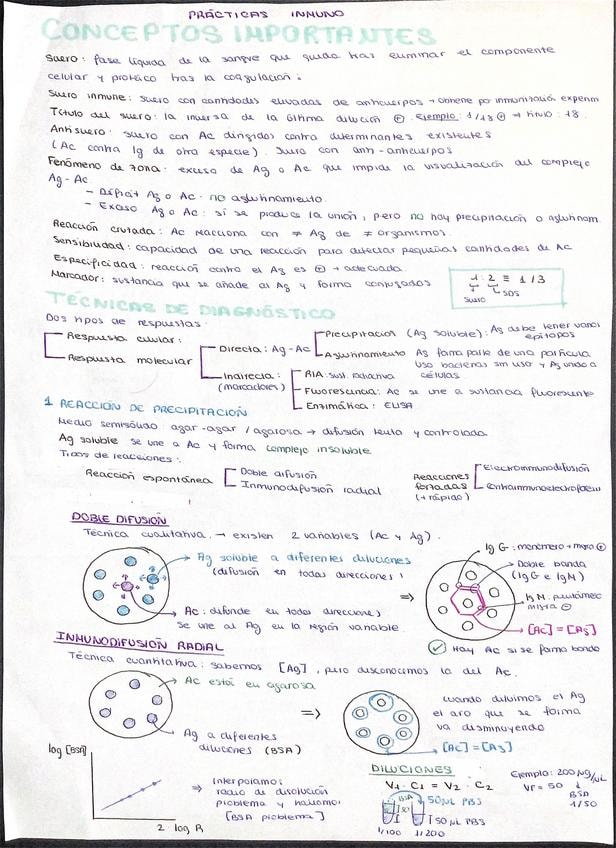 PRÁCTICAS INMUNO
CONCEPTOS IMPORTANTES
Suero: fase líquida de la sangre que queda tras eliminar el componente
celular y proteico tras la coagulación.
Suero inmune: suero con cantidades elevadas de anticuerpos → obtiene por inmunización experim
Título del suero: la inversa de la última dilución ⊕. Ejemplo: 1/18 ⊕ → título: 18.
Antisuero: suero con Ac dirigidos contra determinantes existentes
(Ac contra Ig de otra especie). Suero con anti-anticuerpos
Fenómeno de zona: exceso de Ag o Ac que impide la visualización del complejo
Ag-Ac
- Déficit Ag o Ac: no aglutinamiento.
- Exceso Ag o Ac: sí se produce la unión, pero no hay precipitación o aglutinam.
Reacción cruzada: Ac reacciona con ≠ Ag de ≠ organismos.
Sensibilidad: capacidad de una reacción para detectar pequeñas cantidades de Ac
Especificidad: reacción contra el Ag es ⊕ → adecuada.
Marcador: sustancia que se añade al Ag y forma conjugados
1 : 2 ≡ 1/3
suero
SOS
TÉCNICAS DE DIAGNÓSTICO
Dos tipos de respuestas:
Respuesta celular:
Respuesta molecular
Directa: Ag-Ac
Precipitación (Ag soluble): Ag debe tener varios
epítopos
Aglutinamiento
Ag forma parte de una partícula
Uso bacterias sin uso y Ag unido a
células
Indirecta:
(marcadores)
RIA: sust. radiativa
Fluorescencia: Ac se une a sustancia fluorescente
Enzimática: ELISA
1 REACCIÓN DE PRECIPITACIÓN
Medio semisólido: agar-agar / agarosa → difusión lenta y controlada
Ag soluble se une a Ac y forma complejo insoluble
Tipos de reacciones:
Reacción espontánea
Doble difusión
Inmunodifusión radial
Reacciones
forzadas
(+ rápido)
Electroinmunodifusión
Contrainmunoelectroforesis
DOBLE DIFUSIÓN
Técnica cualitativa → existen 2 variables (Ac y Ag).
Ag soluble a diferentes diluciones
(difusión en todas direcciones)
Ac: difunde en todas direcciones
Se une al Ag en la región variable.
⇒
Ig G: monómero → migra ⊕
Doble banda
(Ig G e Ig M)
Ig M: pentámero
migra ⊖
[Ac] = [Ag]
Hay Ac si se forma banda
INMUNODIFUSIÓN RADIAL
Técnica cuantitativa: sabemos [Ag], pero desconocemos la del Ac.
Ac está en agarosa
Ag a diferentes
diluciones (BSA)
⇒
Cuando diluimos el Ag
el aro que se forma
va disminuyendo
[Ac] = [Ag]
log [BSA]
2 log R
⇒ Interpolamos
radio de disolución
problema y hallamos
[BSA problema]
DILUCIONES
V1 · C1 = V2 · C2
BSA
50 µL PBS
50 µL PBS
1/100
1/200
Ejemplo: 200 µg/µL
VF = 50
BSA
1/50